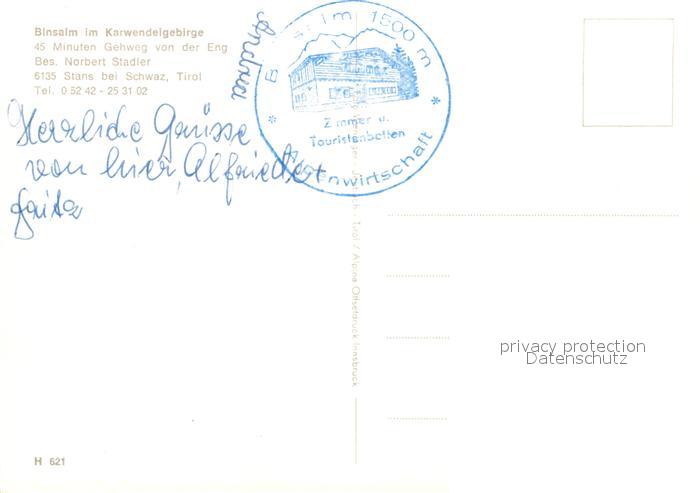 Binsalm im Karwendelgebirge
45 Minuten Gehweg von der Eng
Bes. Norbert Stadler
6135 Stans bei Schwaz, Tirol
Tel. 0 52 42 - 25 31 02
Andrea
Herrliche Grüsse
von hier,
1500 m
Zimmer u.
Touristenbetten
Tirol / Alpina Offsetdruck Innsbruck
privacy protection
Datenschutz
H 621